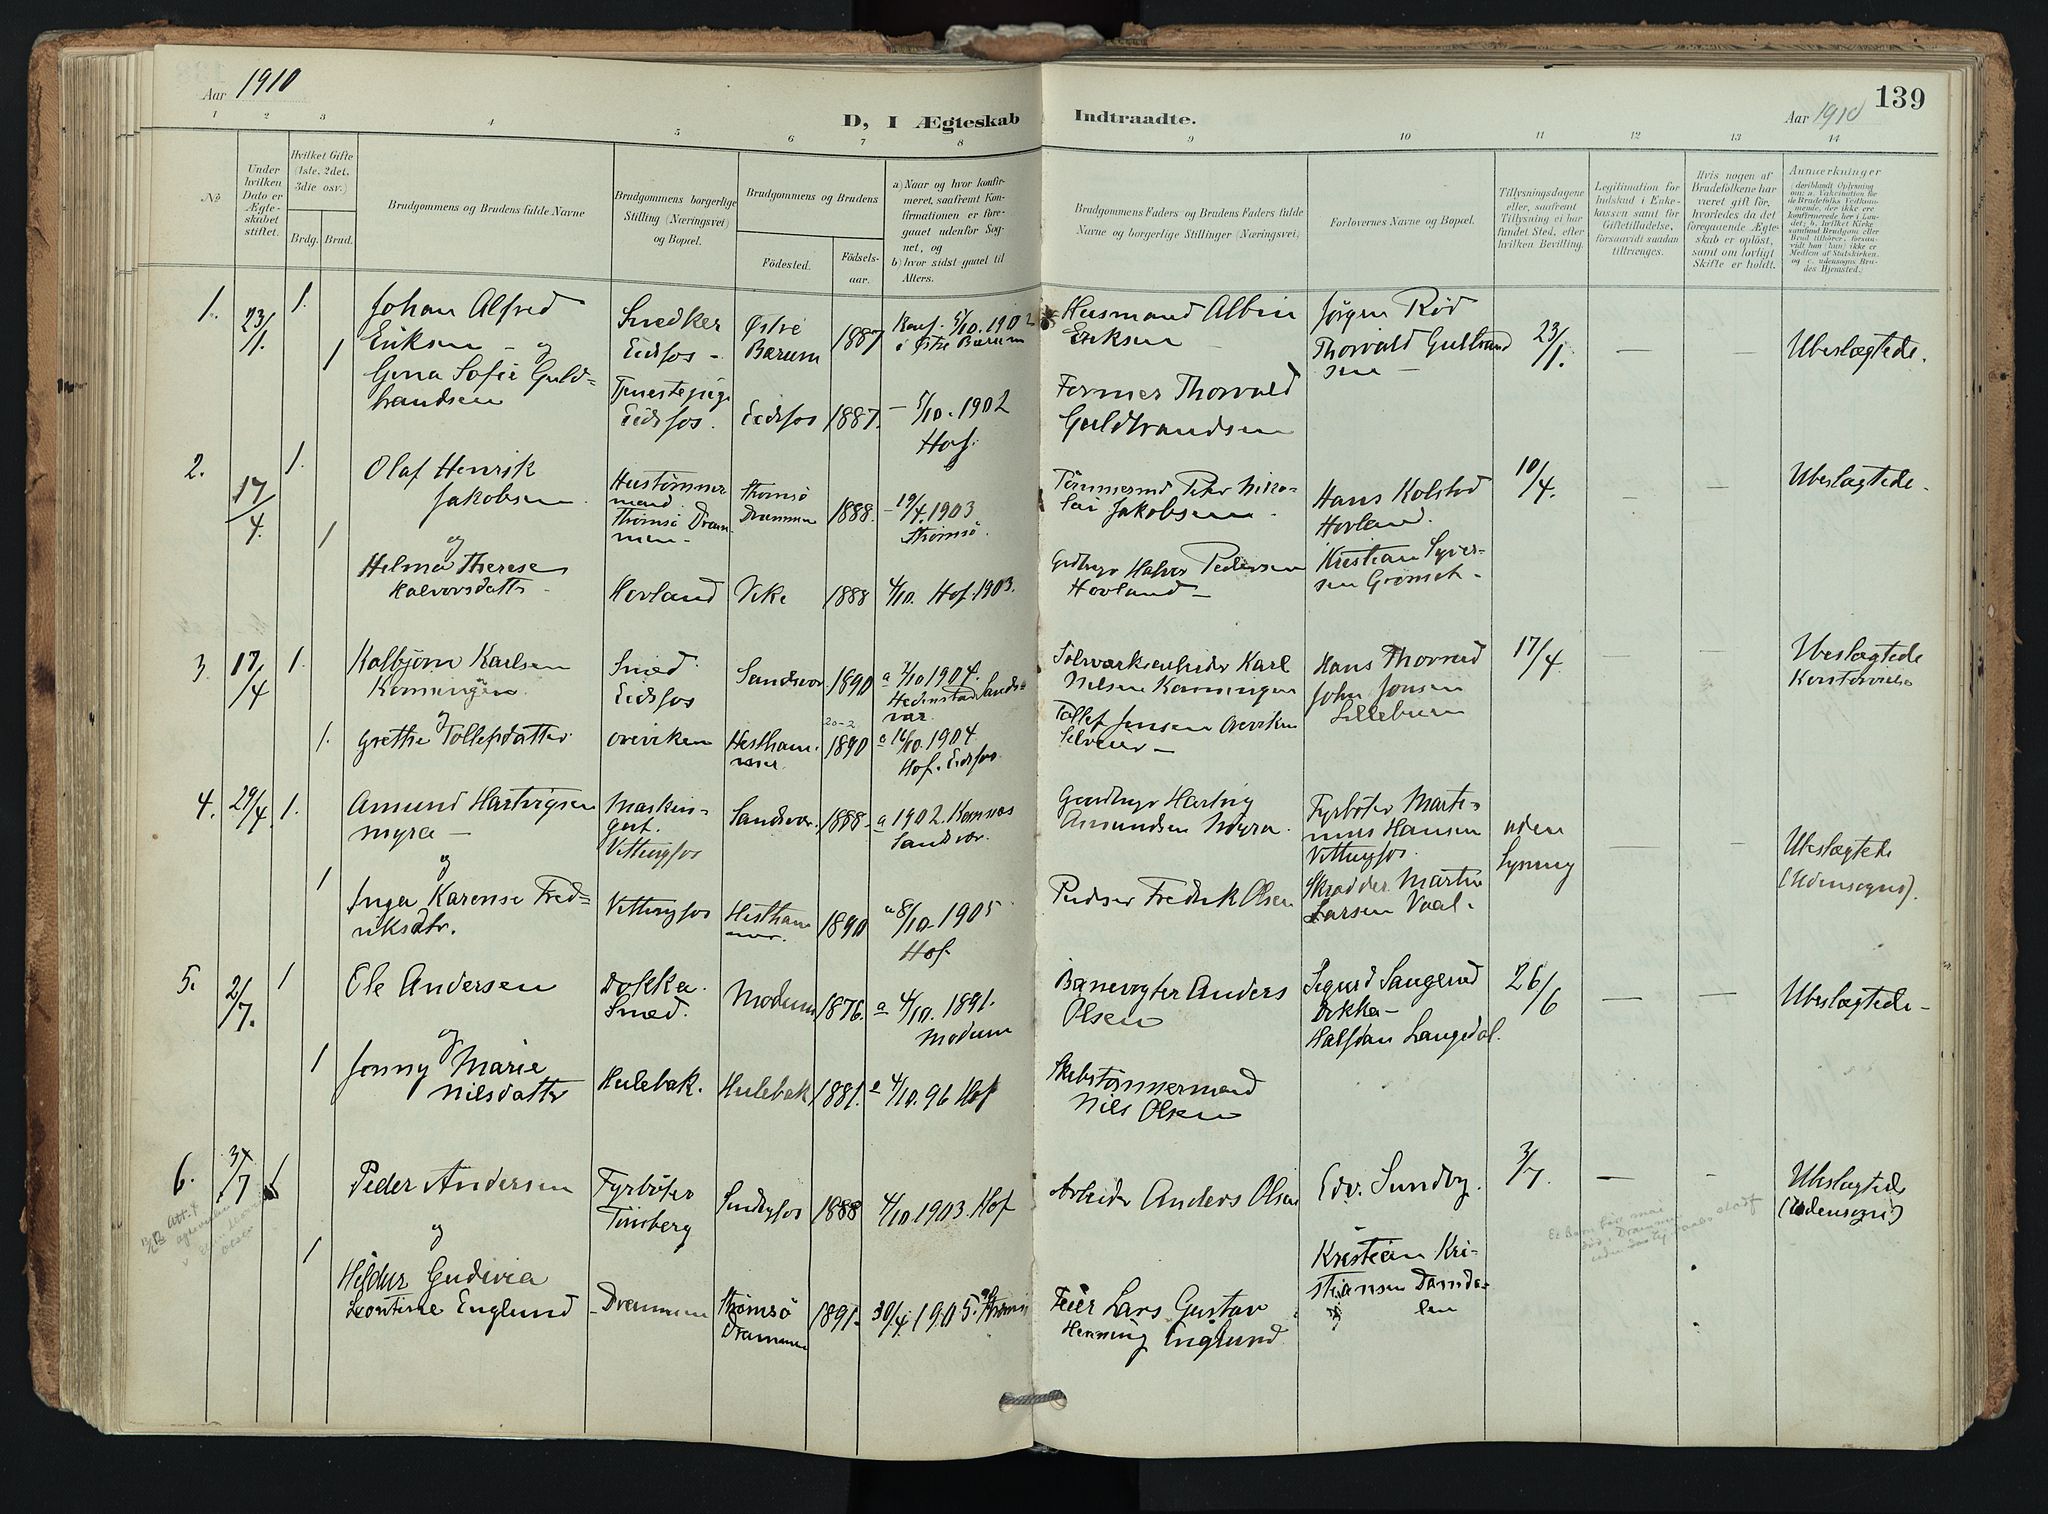 Aar 1910
D, I Ægteskab
Indtraadte.
Aar 1910
139
1
2
3
4
5
6
7
8
9
10
11
12
13
14
No
Under
hvilken
Dato er
Ægte-
skabet
stiftet.
Hvilket Gifte
(1ste, 2det,
3die osv.)
Brdg.
Brud.
Brudgommens og Brudens fulde Navne
Brudgommens borgerlige
Stilling (Næringsvei)
og Bopæl.
Brudgommens og Brudens
Fødested.
Fødsels-
aar.
a) Naar og hvor konfir-
meret, saafremt Kon-
firmationen er fore-
gaaet udenfor Sog-
net, og
b) hvor sidst gaaet til
Alters.
Brudgommens Faders og Brudens Faders fulde
Navne og borgerlige Stillinger (Næringsvei)
Forlovernes Navne og Bopæl.
Tillysningsdagene
eller, saafremt
Tillysning ei har
fundet Sted, efter
hvilken Bevilling.
Legitimation for
Indskud i Enke-
kassen samt for
Giftetilladelse,
forsaavidt saadan
tiltrænges.
Hvis nogen af
Brudefolkene har
været gift før,
hvorledes da det
foregaaende Ægte-
skab er opløst,
samt om lovligt
Skifte er holdt.
Anmærkninger
1.
23/1.
1.
Johan Alfred
Eriksen - og
Snedker
Eidsfos -
Østre
Bærum
1887
Konf. 5/10. 1902
i Østre Bærum
Husmand Albin
Eriksen
Jørgen Rød
Thorvald Guldbrand
sen -
23/1.
—
—
Ubeslægtede.
1
Gena Sofie Guld-
brandsen
Tjenestepige
Eidsfos.
Eidsfos
1887.
- 5/10. 1902
Hof.
Former Thorvald
Guldbrandsen
2.
17/4.
1.
Olaf Henrik
Jakobsen
og
Hustømmer
mand
Strømsø Dram
men -
Strømsø
Drammen
1888.
- 19/4. 1903
Strømsø.
Tømmermd Peter Niko-
lai Jakobsen.
Hans Kolstad
Hovland.
10/4.
Ubeslægtede.
1
Helma Therese
Halvorsdatter
Hovland
Vike
1888
4/10. Hof. 1903.
Gårdbrugr Halvor Pedersen
Hovland -
Kristian Syver-
sen Grønset -
3.
17/4
1.
Kolbjørn Karlsen
Komningen
og
Smed
Eidsfos
Sandsvær
1890
a 2/10 1904.
Hedenstad Sands-
vær
Sølvværksarbeider Karl
Nilsen Komningen
Hans Thorrud
John Jonsen
Lillebuen
17/4
Ubeslægtede
1.
Grethe Tollefsdatter
Oreviken
Hestham-
mer.
20-2
1890
a 16/10. 1904.
Hof. Eidsfos
Tollef Jensen Oreviken
Selveier -
4.
29/4.
1.
Amund Hartvigsen
Myra -
og
Maskin-
gut.
Vittingfos
Sandsvær.
1888.
a 1902. Komnæs
Sandsvær.
Gaardbrugr Hartvig
Amundsen Myra.
Fyrbøter Marti-
nus Hansen
Vittingfos.
uden
Lysning
Ubeslægtede
(Udensogns).
1
Inga Karense Fred-
riksdtr.
Vittingfos
Hestham
mer.
1890
a 8/10. 1905
Hof.
Pudser Fredrik Olsen
Skrædder Martin
Larsen Vaal.
5.
2/7.
1
Ole Andersen
og
Dokka.
Smed.
Modum
1876.
a 4/10. 1891.
Modum
Banevogter Anders
Olsen
Sigurd Langerud
Dokka -
Halfdan Langedal.
26/6
—
—
Ubeslægtede -
1
Jonny Marie
Nilsdatter
Hulebak.
Hulebak
1881.
a 4/10. 96 Hof
Skibstømmermand
Nils Olsen
6.
1
Peder Andersen
og
Fyrbøter
Tønsberg
Sundbyfos
1888
4/10. 1903. Hof
Arbeider Anders Olsen
Edv. Sundby.
3/7.
Ubeslægtede
(Udensogns)
1
Hildur Gudivia
Leontine Englund
Drammen
Strømsø
Drammen
1891.
30/4. 1905.
Feier Lars Gustav
Henning Englund
Kristian Kri-
stiansen Damda-
len